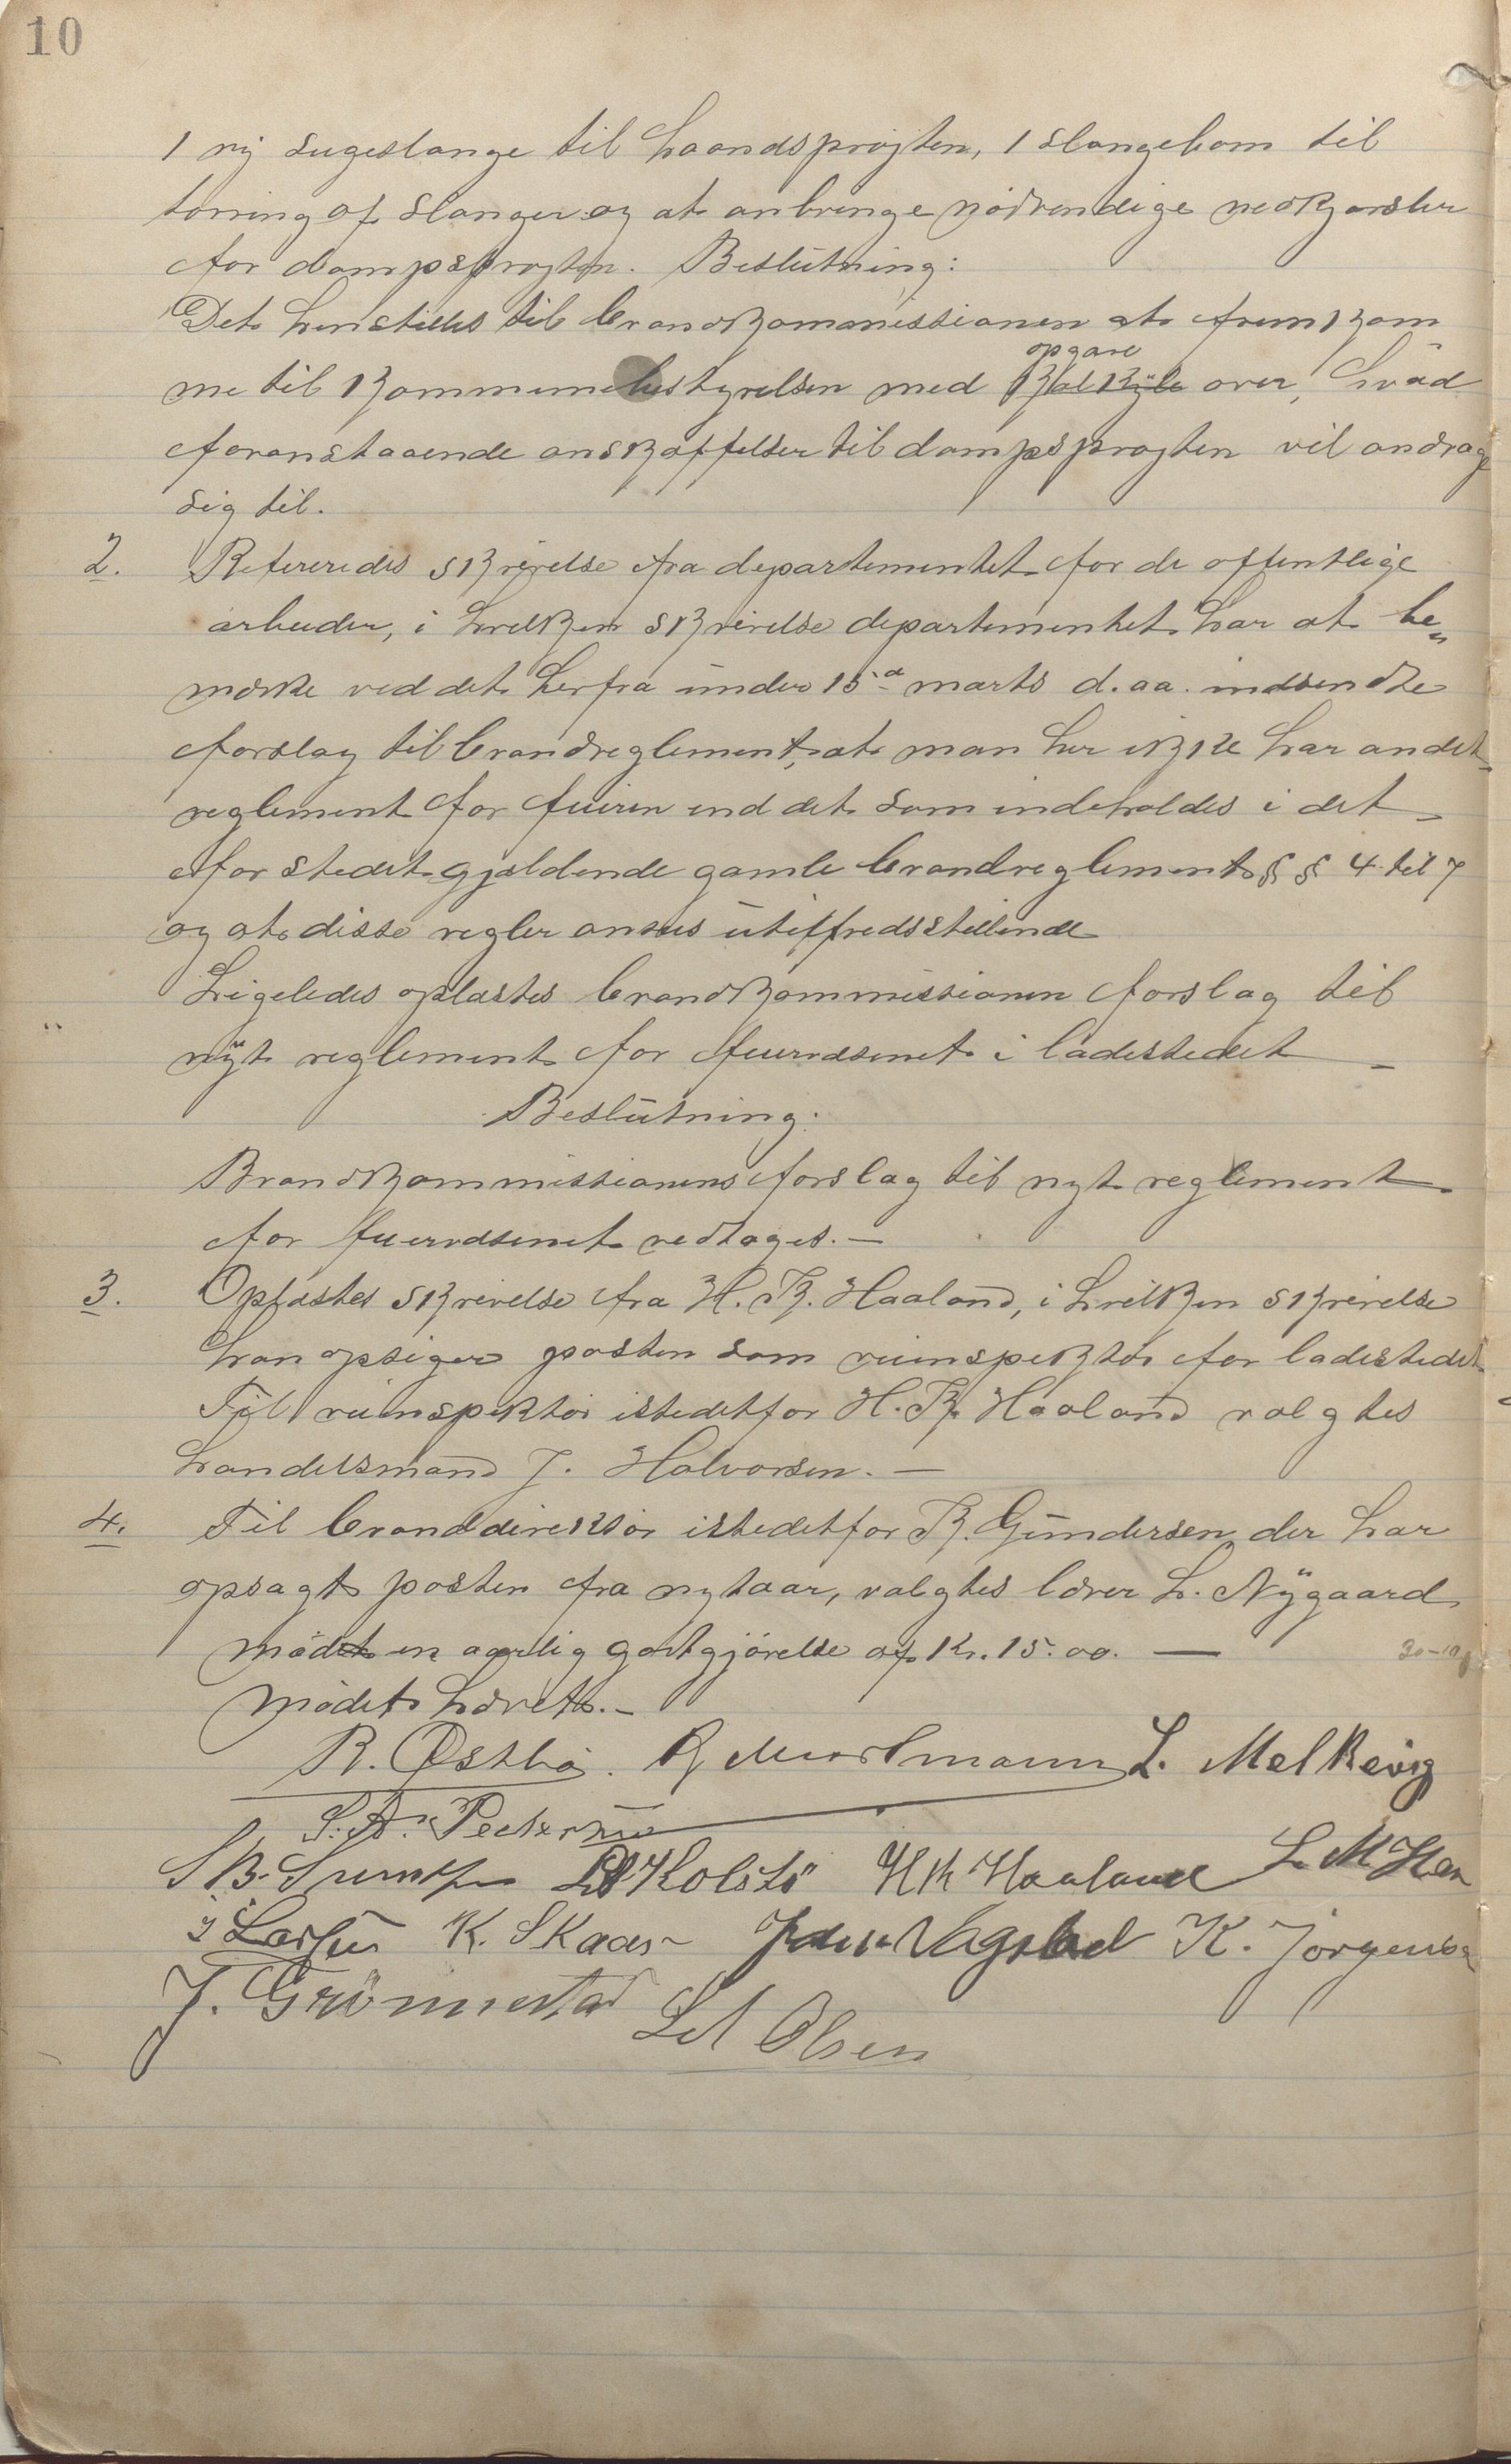 10
1 ny sugeslange til haandsprøjten, 1 slangebom til
tørring af slanger og at anbringe nødvendige nedkjørsler
for dampsprøjten. Beslutning:
Det henstilles til brandkommissionen at fremkom
opgave
me til kommunebestyrelsen med kalkyle over, hvad
foranstaaende anskaffelser til dampsprøjten vil andrage
sig til.
2. Refereredes skrivelse fra departementet for de offentlige
arbeider, i hvilken skrivelse departementet har at be„
mærke ved det herfra under 15de marts d. aa. indsendte
forslag til brandreglement, at man her ikke har andet
reglement for feieren end det som indeholdes i det
for stedet gjældende gamle brandreglement §§ 4 til 7
og at disse regler ansees utilfredsstillende
Ligeledes oplæstes brandkommissionen forslag til
nyt reglement for feiervæsenet i ladestedet
Beslutning:
Brandkommissionens forslag til nyt reglement
for feiervæsenet vedtages. —
3. Oplæstes skrivelse fra H. K. Haaland, i hvilken skrivelse
han opsiger posten som veiinspektør for ladestedet
Til veiinspektør istedetfor H. K. Haaland valgtes
handelsmand J. Halvorsen. —
4. Til branddirektør istedetfor K. Gundersen der har
opsagt posten fra nytaar, valgtes lærer L. Nygaard
mod en aarlig godtgjørelse af Kr. 15.00. —
Mødet hævet. —
R. Østbø. L. Melkevig
S. A. Pedersen
Kolstø H K Haaland
K. Skaar Vagstad K. Jørgensen
J. Grønnestad
Olsen